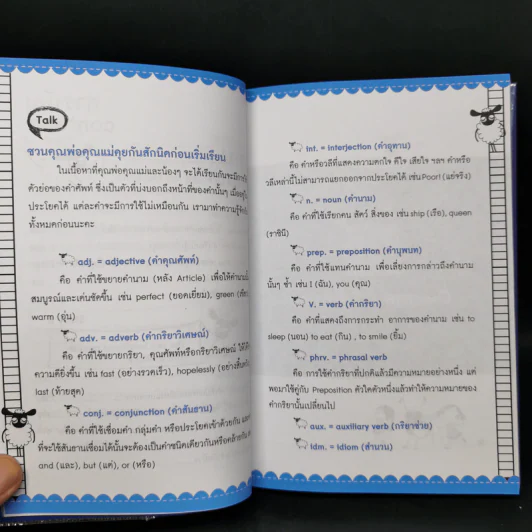 Talk
ชวนคุณพ่อคุณแม่คุยกันสักนิดก่อนเริ่มเรียน
ในเนื้อหาที่คุณพ่อคุณแม่และน้องๆ จะได้เรียนกันจะมีการใช้
ตัวย่อของคำศัพท์ ซึ่งเป็นตัวที่บ่งบอกถึงหน้าที่ของคำนั้นๆ เมื่ออยู่ใน
ประโยคได้ แต่ละคำจะมีการใช้ไม่เหมือนกัน เรามาทำความรู้จัก
ทั้งหมดก่อนนะคะ
adj. = adjective (คำคุณศัพท์)
คือ คำที่ใช้ขยายคำนาม (หลัง Article) เพื่อให้คำนาม
สมบูรณ์และเด่นชัดขึ้น เช่น perfect (ยอดเยี่ยม), green
warm (อุ่น)
adv. = adverb (คำกริยาวิเศษณ์)
คือ คำที่ใช้ขยายกริยา, คุณศัพท์หรือกริยาวิเศษณ์ ให้ได้
ความดียิ่งขึ้น เช่น fast (อย่างรวดเร็ว), hopelessly
last (ท้ายสุด)
conj. = conjunction (คำสันธาน)
คือ คำที่ใช้เชื่อมคำ กลุ่มคำ หรือประโยคเข้าด้วยกัน
ที่จะใช้สันธานเชื่อมได้นั้นจะต้องเป็นคำชนิดเดียวกันหรือคล้ายกัน
and (และ), but (แต่), or (หรือ)
int. = interjection (คำอุทาน)
คือ คำหรือวลีที่แสดงความตกใจ ดีใจ เสียใจ ฯลฯ คำหรือ
วลีเหล่านี้ไม่สามารถแยกออกจากประโยคได้ เช่น Poor! (แย่จริง)
n. = noun (คำนาม)
คือ คำที่ใช้เรียกคน สัตว์ สิ่งของ เช่น ship (เรือ), queen
(ราชินี)
prep. = preposition (คำบุพบท)
คือ คำที่ใช้แทนคำนาม เพื่อเลี่ยงการกล่าวถึงคำนาม
นั้นๆ ซ้ำ เช่น I (ฉัน), you (คุณ)
V. = verb (คำกริยา)
คือ คำที่แสดงถึงการกระทำ อาการของคำนาม เช่น to
sleep (นอน) to eat (กิน) , to smile (ยิ้ม)
phrv. = phrasal verb
คือ การใช้คำกริยาที่ปกติแล้วมีความหมายอย่างหนึ่ง แต่
พอมาใช้คู่กับ Preposition ตัวใดตัวหนึ่งแล้วทำให้ความหมายของ
คำกริยานั้นเปลี่ยนไป
aux. = auxiliary verb (กริยาช่วย)
idm. = idiom (สำนวน)